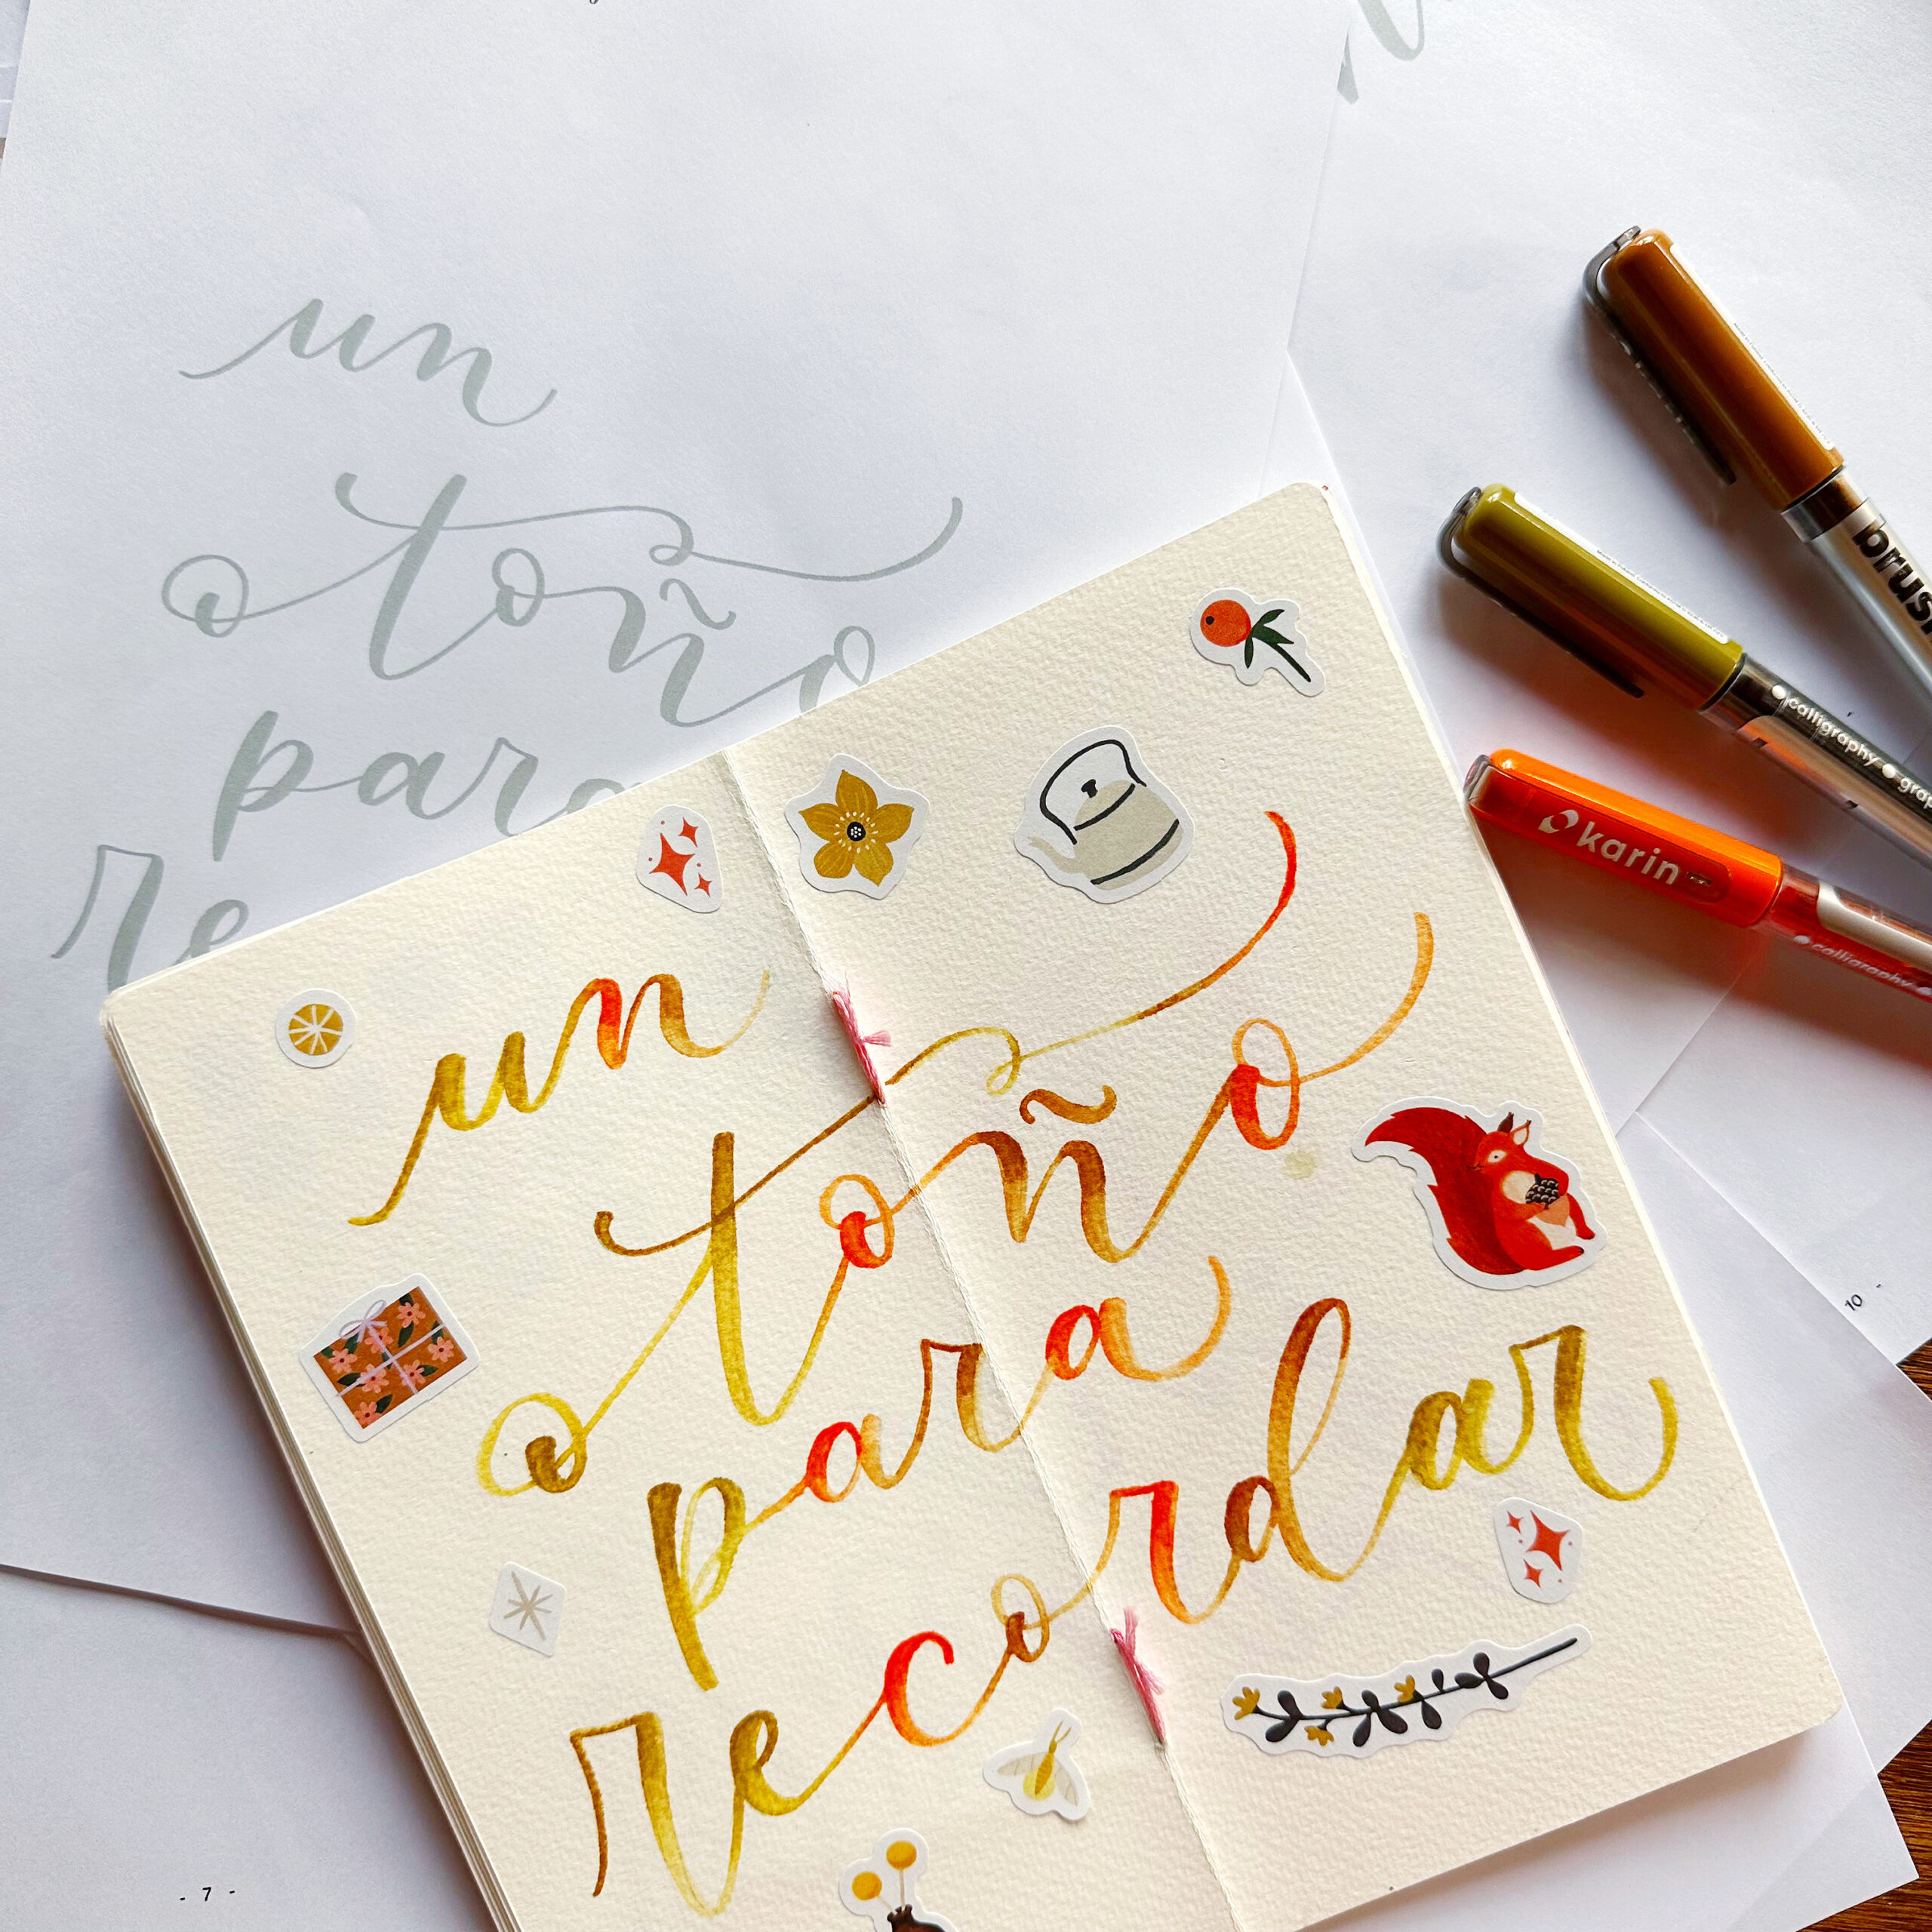 un
otoño
para
re
un
otoño
para
recordar
brus
calligraphy
karin
calligraphy
10 -
- 7 -